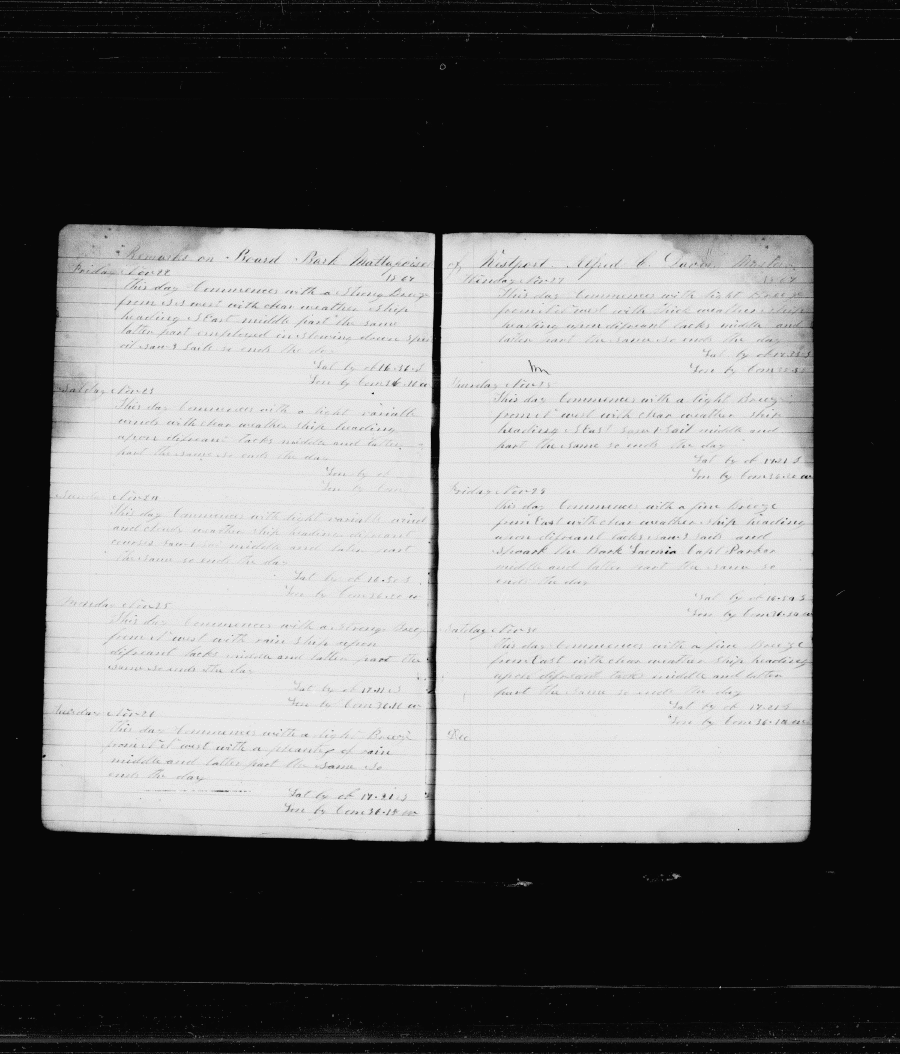 Remarks on Board Bark Mattapoisett
Friday Nov 22 1867
This day Commences with a Strong Breeze
from S S west with clear weather Ship
heading S East middle part the same
latter part employed in Stowing down Spe
oil Saw 3 Sails so ends the day
Lat by ob 16-36 S
Lon by Com 36-10 w
Satday Nov 23
This day Commences with a light variable
winds with clear weather Ship heading
apon difreant tacks middle and latter
part the same so ends the day
Lat by ob
Lon by Com
Nov 24
This day Commences with light variable wind
and cloudy weather Ship heading difreant
courses Saw middle and latter part
the same so ends the day
Lat by ob 16-50 S
Lon by Com 36-20 w
Munday Nov 25
This day Commences with a Strong Breeze
from N west with rain Ship apon
difreant tacks middle and latter part the
same so ends the day
Lat by ob 17-21 S
Lon by Com 36-10 w
Tuesday Nov 26
This day Commences with a light Breeze
from N west with a pleanty of rain
middle and latter part the same so
ends the day
Lat by ob 17-31 S
Lon by Com 36-19 w
of Westport Alfred C. Davis Master
Wenday Nov 27 1867
This day Commences with light Breeze
from N west with thick weather Ship
heading apon difreant tacks middle and
latter part the same so ends the day
Lat by ob 17-23 S
Lon by Com
Thursday Nov 28
This day Commences with a light Breeze
from N west with clear weather Ship
heading S East Saw 1 Sail middle and
part the same so ends the day
Lat by ob 17-21 S
Lon by Com 36-30 w
Friday Nov 29
this day Commences with a fine Breeze
from East with clear weather Ship heading
apon difreant tacks Saw 3 Sails and
Spoack the Bark Laconia Capt Parker
middle and latter part the same so
ends the day
Lat by ob 16-59 S
Lon by Com 36-30 w
Satday Nov 30
this day Commences with a fine Breeze
from East with clear weather Ship heading
apon difreant tacks middle and latter
part the same so ends the day
Lat by ob 17-21 S
Lon by Com 36-18 w
Dec